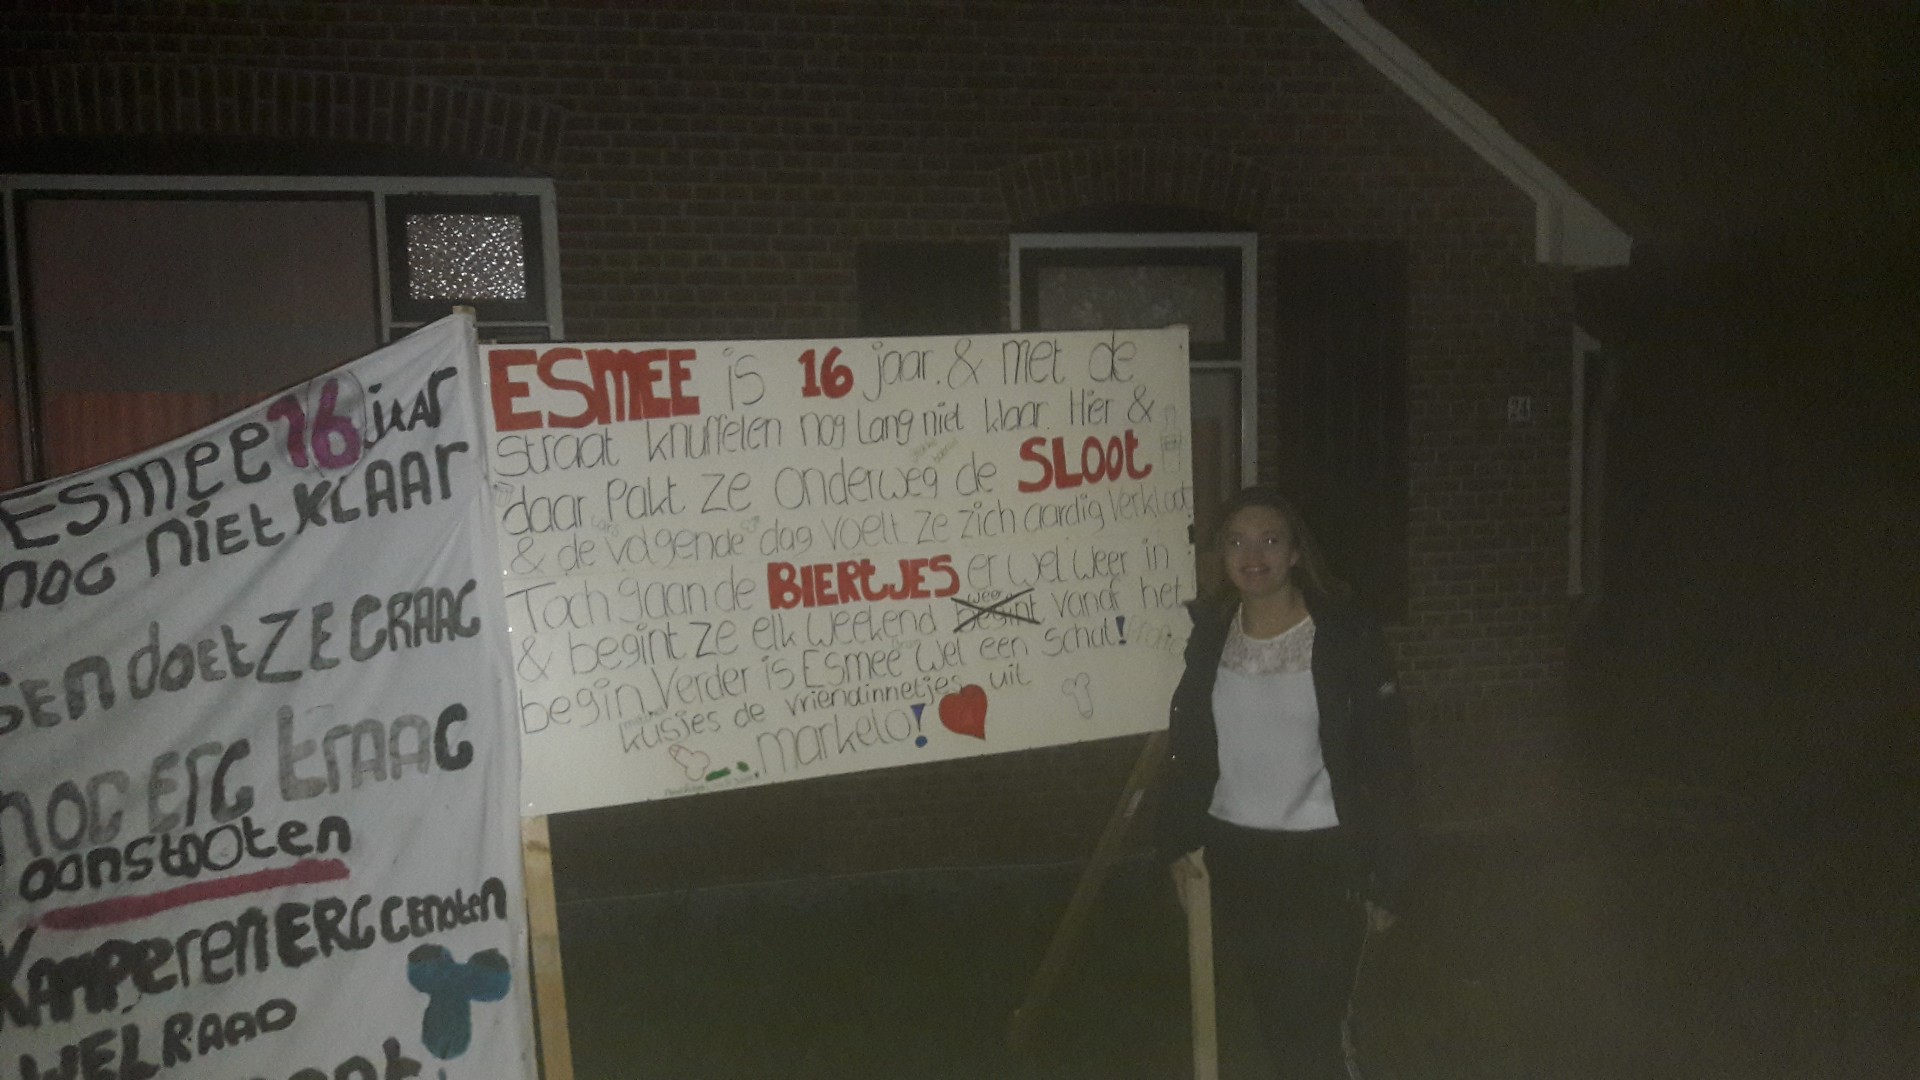 Esmee 16 jaar
nog niet klaar
doet ze graag
nog erg traag
aanstooten
Kamperen erg genoten
wel raad
ESMEE is 16 jaar. & met de
straat knuffelen nog lang niet klaar. Hier &
daar pakt ze onderweg de SLOOT
& de volgende dag voelt ze zich aardig verkloot
Toch gaan de BIERTJES er wel weer in
& begint ze elk weekend weer vanaf het
begin. Verder is Esmee wel een schat!
kusjes de vriendinnetjes uit
markelo!
24